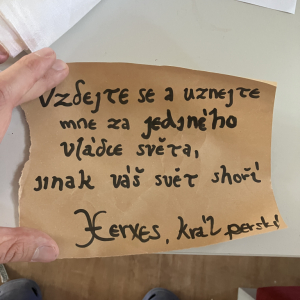 Vzdejte se a uznejte
mne za jediného
vládce světa,
jinak váš svět shoří
Xerxes, král perský